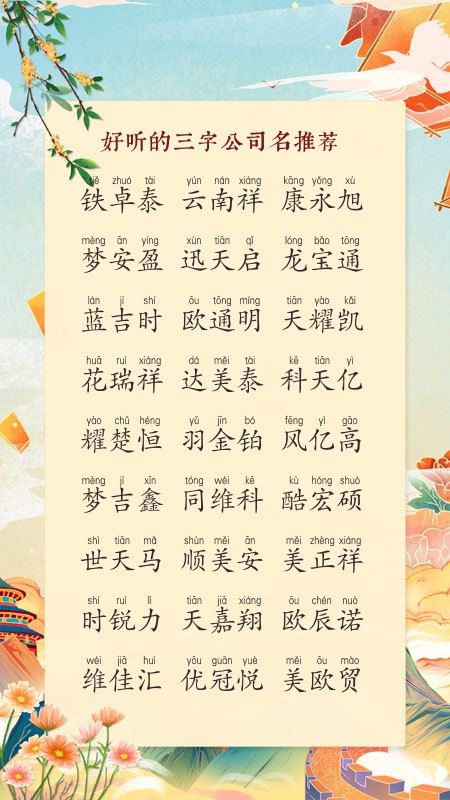 好听的三字公司名推荐
tiě zhuó tài yún nán xiáng kāng yǒng xù
铁卓泰 云南祥 康永旭
mèng ān yíng xùn tiān qǐ lóng bǎo tōng
梦安盈 迅天启 龙宝通
lán jí shí ōu tōng míng tiān yào kǎi
蓝吉时 欧通明 天耀凯
huā ruì xiáng dá měi tài kē tiān yì
花瑞祥 达美泰 科天亿
yào chǔ héng yǔ jīn bó fēng yì gāo
耀楚恒 羽金铂 风亿高
mèng jí xīn tóng wéi kē kù hóng shuò
梦吉鑫 同维科 酷宏硕
shì tiān mǎ shùn měi ān měi zhèng xiáng
世天马 顺美安 美正祥
shí ruì lì tiān jiā xiáng ōu chén nuò
时锐力 天嘉翔 欧辰诺
wéi jiā huì yōu guān yuè měi ōu mào
维佳汇 优冠悦 美欧贸